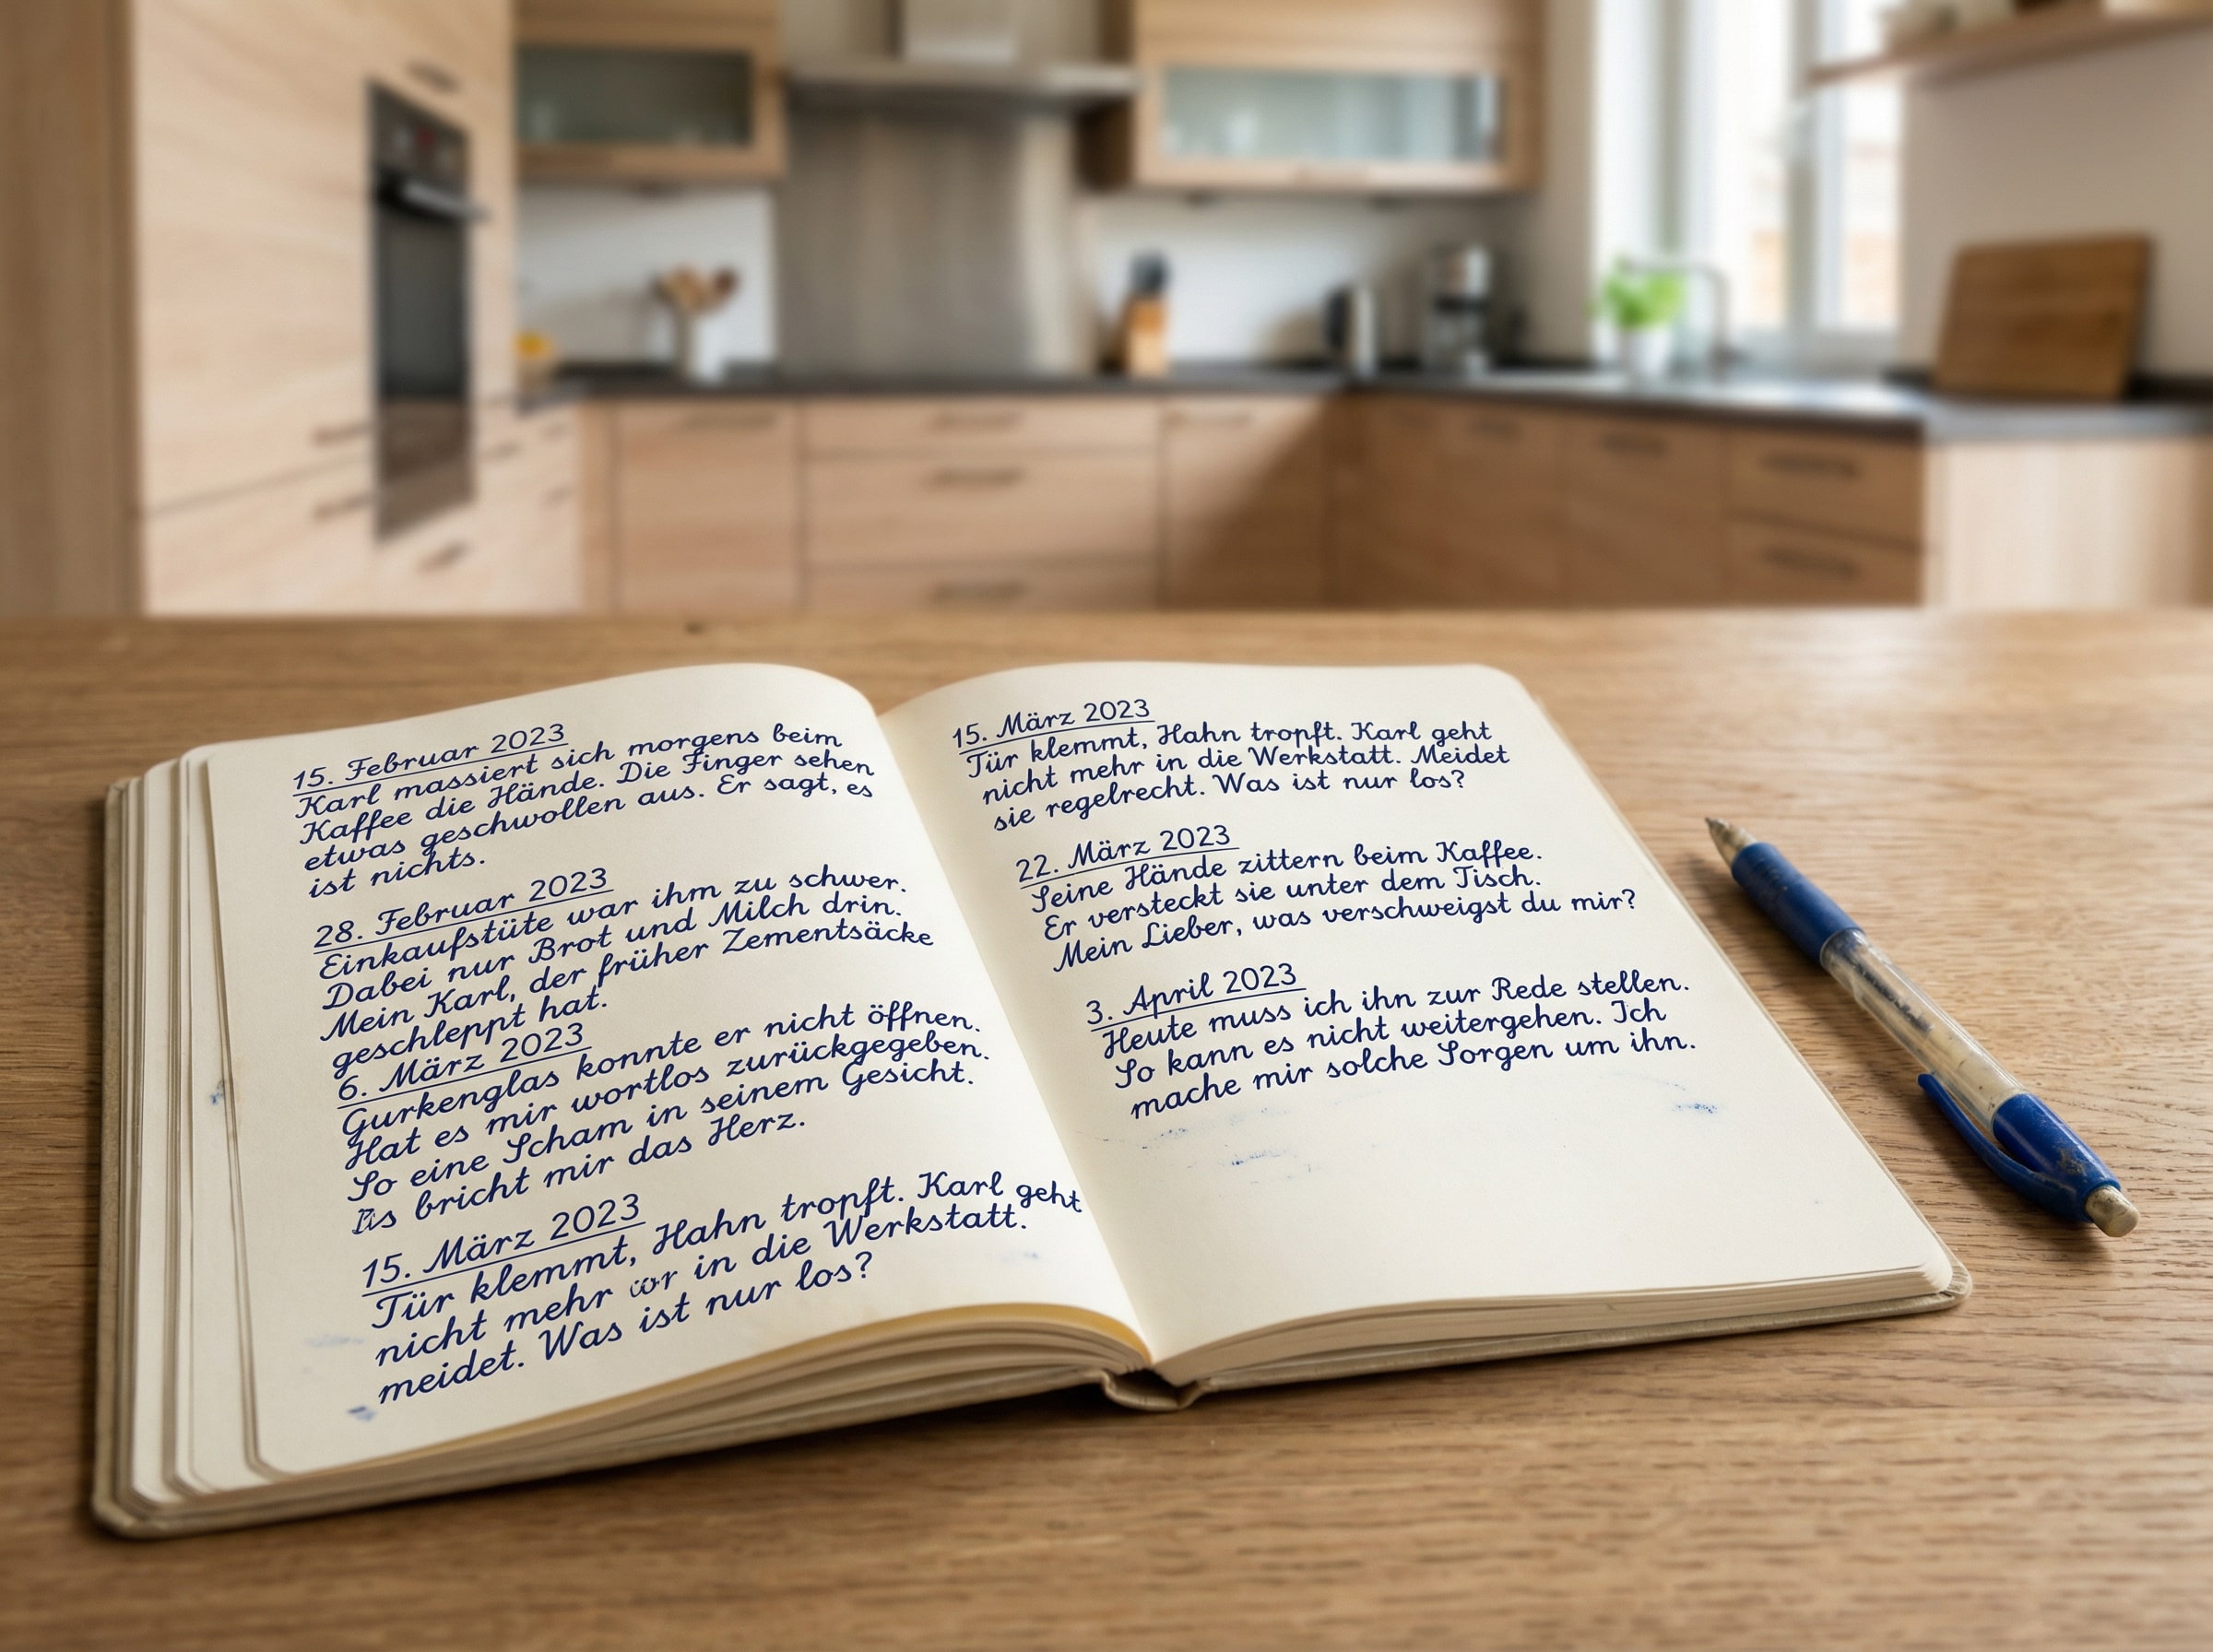 15. Februar 2023
Karl massiert sich morgens beim
Kaffee die Hände. Die Finger sehen
etwas geschwollen aus. Er sagt, es
ist nichts.
28. Februar 2023
Einkaufstüte war ihm zu schwer.
Dabei nur Brot und Milch drin.
Mein Karl, der früher Zementsäcke
geschleppt hat.
6. März 2023
Gurkenglas konnte er nicht öffnen.
Hat es mir wortlos zurückgegeben.
So eine Scham in seinem Gesicht.
bricht mir das Herz.
15. März 2023
Tür klemmt, Hahn tropft. Karl geht
nicht mehr in die Werkstatt.
meidet. Was ist nur los?
15. März 2023
Tür klemmt, Hahn tropft. Karl geht
nicht mehr in die Werkstatt. Meidet
sie regelrecht. Was ist nur los?
22. März 2023
Seine Hände zittern beim Kaffee.
Er versteckt sie unter dem Tisch.
Mein Lieber, was verschweigst du mir?
3. April 2023
Heute muss ich ihn zur Rede stellen.
So kann es nicht weitergehen. Ich
mache mir solche Sorgen um ihn.